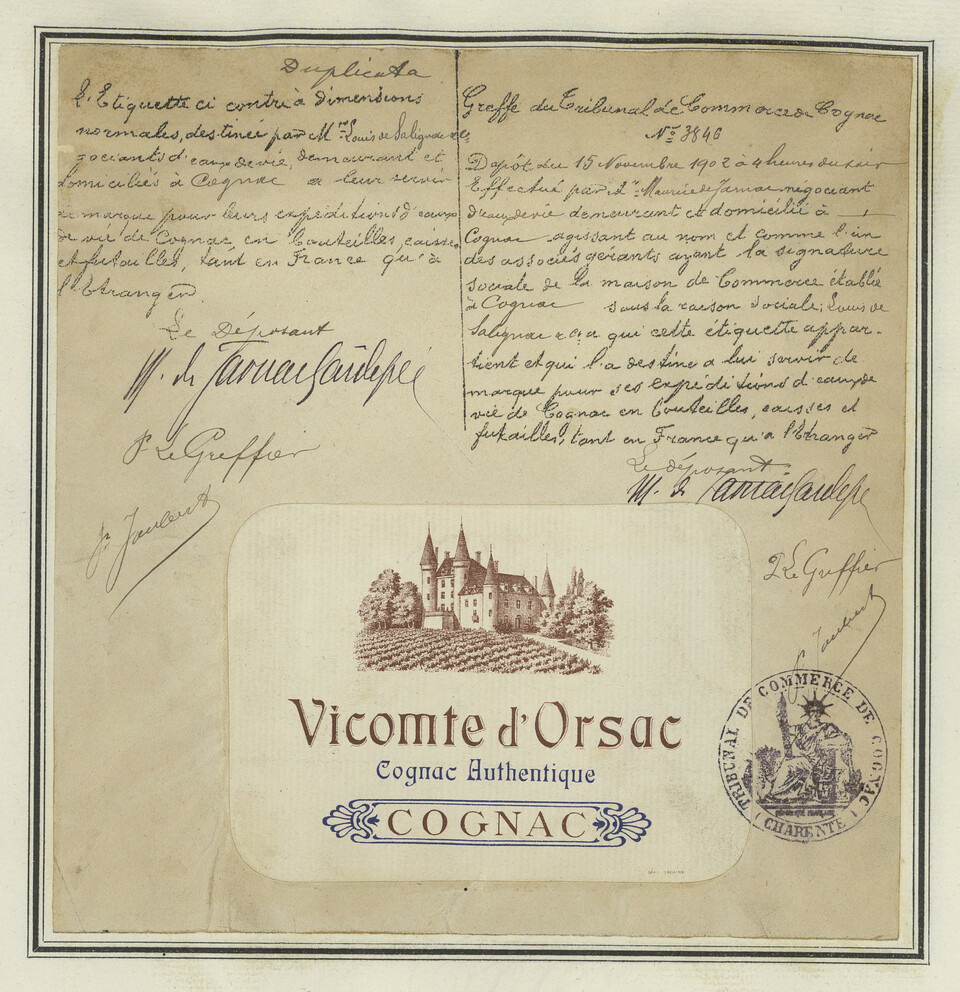 Duplicata
L'Etiquette ci contre à dimensions
normales, destinée par Mrs Louis de Salignac & Cie
négociants d'eaux de vie, demeurant et
domiciliés à Cognac a leur servir
de marque pour leurs expéditions d'eaux
de vie de Cognac en bouteilles, caisses
et futailles, tant en France qu'à
l'Etranger
Le Déposant
M. de
P. Le Greffier
P. Joubert
Greffe du Tribunal de Commerce de Cognac
No 3846
Dépôt du 15 Novembre 1902 à 4 heures du soir
Effectué par Mr Maurice de Jarnac négociant
d'eau de vie demeurant et domicilié à
Cognac agissant au nom et comme l'un
des associés gérants ayant la signature
sociale de la maison de Commerce établie
à Cognac sous la raison sociale: Louis de
Salignac & Cie a qui cette étiquette appar-
tient et qui l'a destine a lui servir de
marque pour ses expéditions d'eaux de
vie de Cognac en bouteilles, caisses et
futailles, tant en France qu'a l'Etranger
Le déposant
M. de
P. Le Greffier
P. Joubert
Vicomte d'Orsac
Cognac Authentique
COGNAC
TRIBUNAL DE COMMERCE DE COGNAC
(CHARENTE)